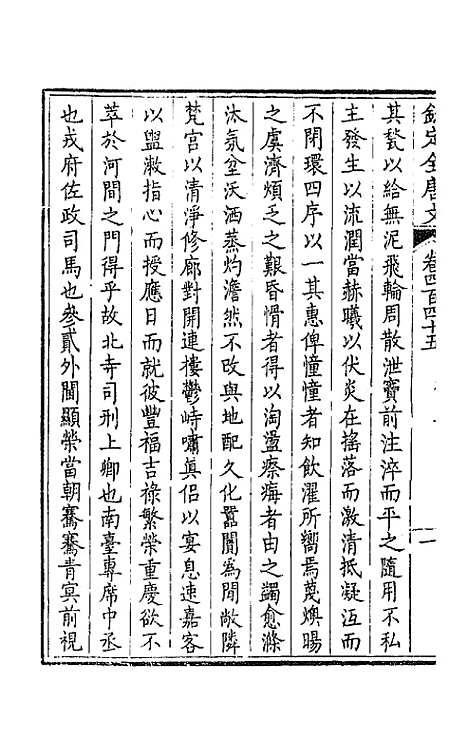 欽定全唐文
卷四百四十五
一
其甃以給無泥飛輪周散泄竇前注淬而平之隨用不私
主發生以流潤當赫曦以伏炎在搖落而激清抵凝沍而
不閉環四序以一其惠俾憧憧者知飲濯所嚮焉蔑燠暘
之虞濟煩乏之艱昏㥿者得以淘盪瘵痗者由之蠲愈滌
汰氛坌沃洒蒸灼澹然不改與地配久化嚚闤為閒敞隣
梵宮以清淨修廊對開連樓鬱峙嘯真侶以宴息速嘉客
以盥漱指心而授應日而就彼豐福吉祿繁榮重慶欲不
萃於河間之門得乎故北寺司刑上卿也南臺專席中丞
也戎府佐政司馬也參貳外閫顯榮當朝騫騫青冥前視